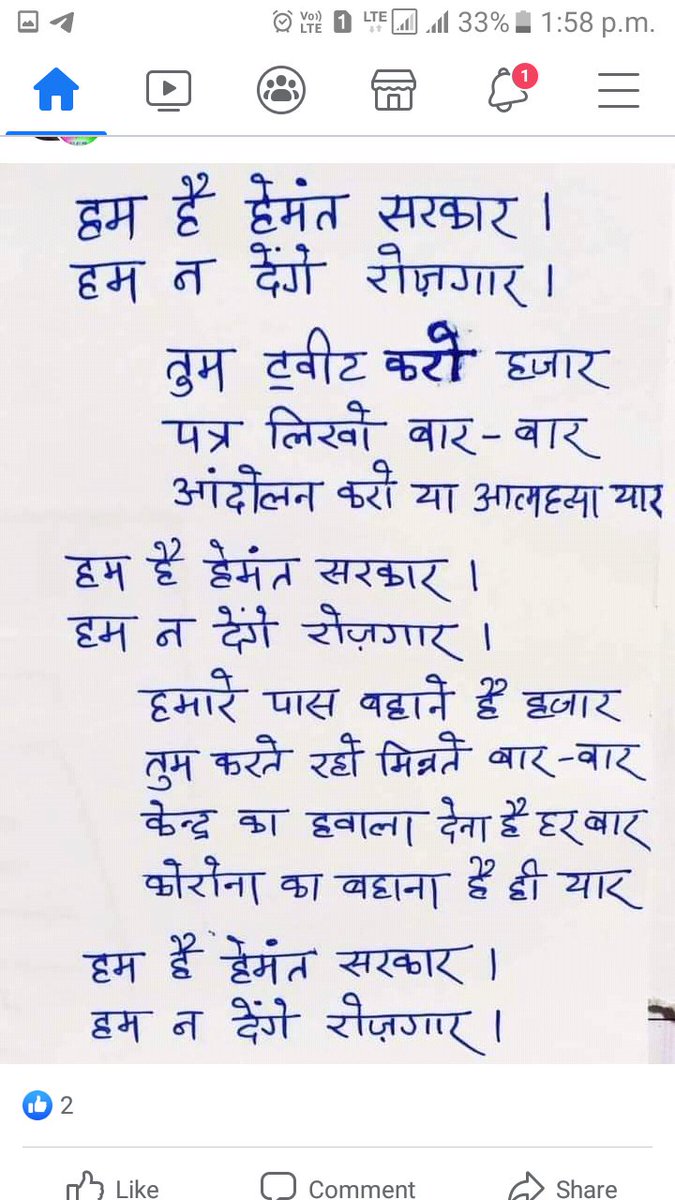 Vo)) LTE 1 LTE 33% 1:58 p.m.
1
हम है हेमंत सरकार ।
हम न देंगे रोज़गार ।
तुम ट्वीट करो हजार
पत्र लिखो बार-बार
आंदोलन करो या आत्महत्या यार
हम है हेमंत सरकार ।
हम न देंगे रोज़गार ।
हमारे पास बहाने है हजार
तुम करते रहो मिन्नते बार-बार
केन्द्र का हवाला देना है हर बार
कोरोना का बहाना है ही यार
हम है हेमंत सरकार ।
हम न देंगे रोज़गार ।
2
Like Comment Share